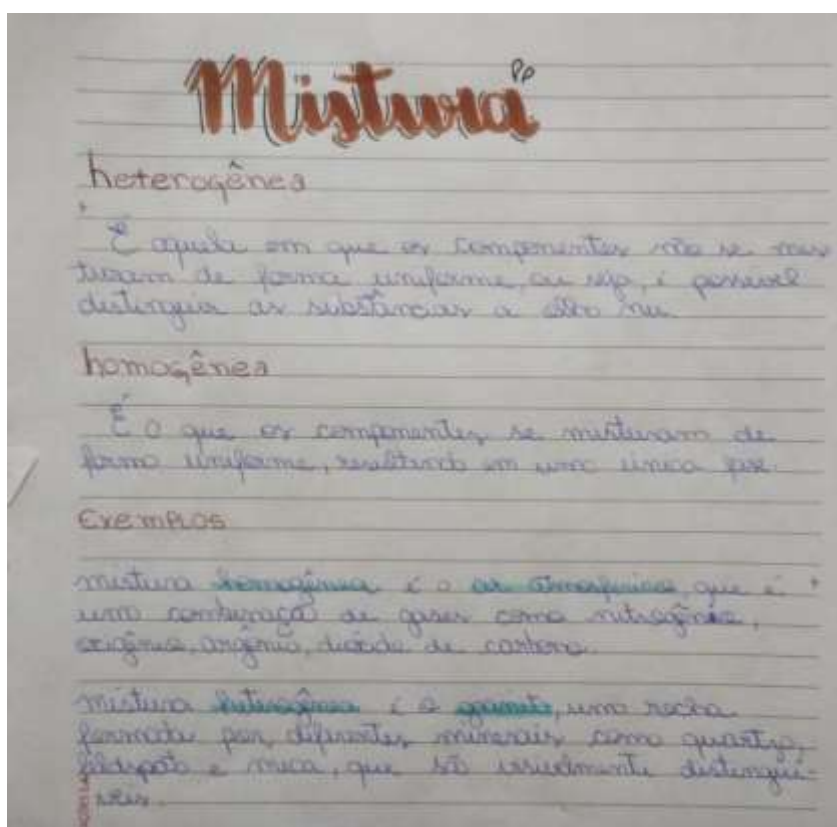 Mistura
heterogênea
É aquela em que os componentes não se mis
turam de forma uniforme, ou seja, é possível
distinguir as substâncias a olho nu.
homogênea
É o que os componentes se misturam de
forma uniforme, resultando em uma única fase.
Exemplos
mistura homogênea é o ar atmosférico, que é
uma combinação de gases como nitrogênio,
oxigênio, argônio, dióxido de carbono.
mistura heterogênea é o granito, uma rocha
formada por diferentes minerais como quartzo,
feldspato e mica, que são visualmente distinguí-
veis.